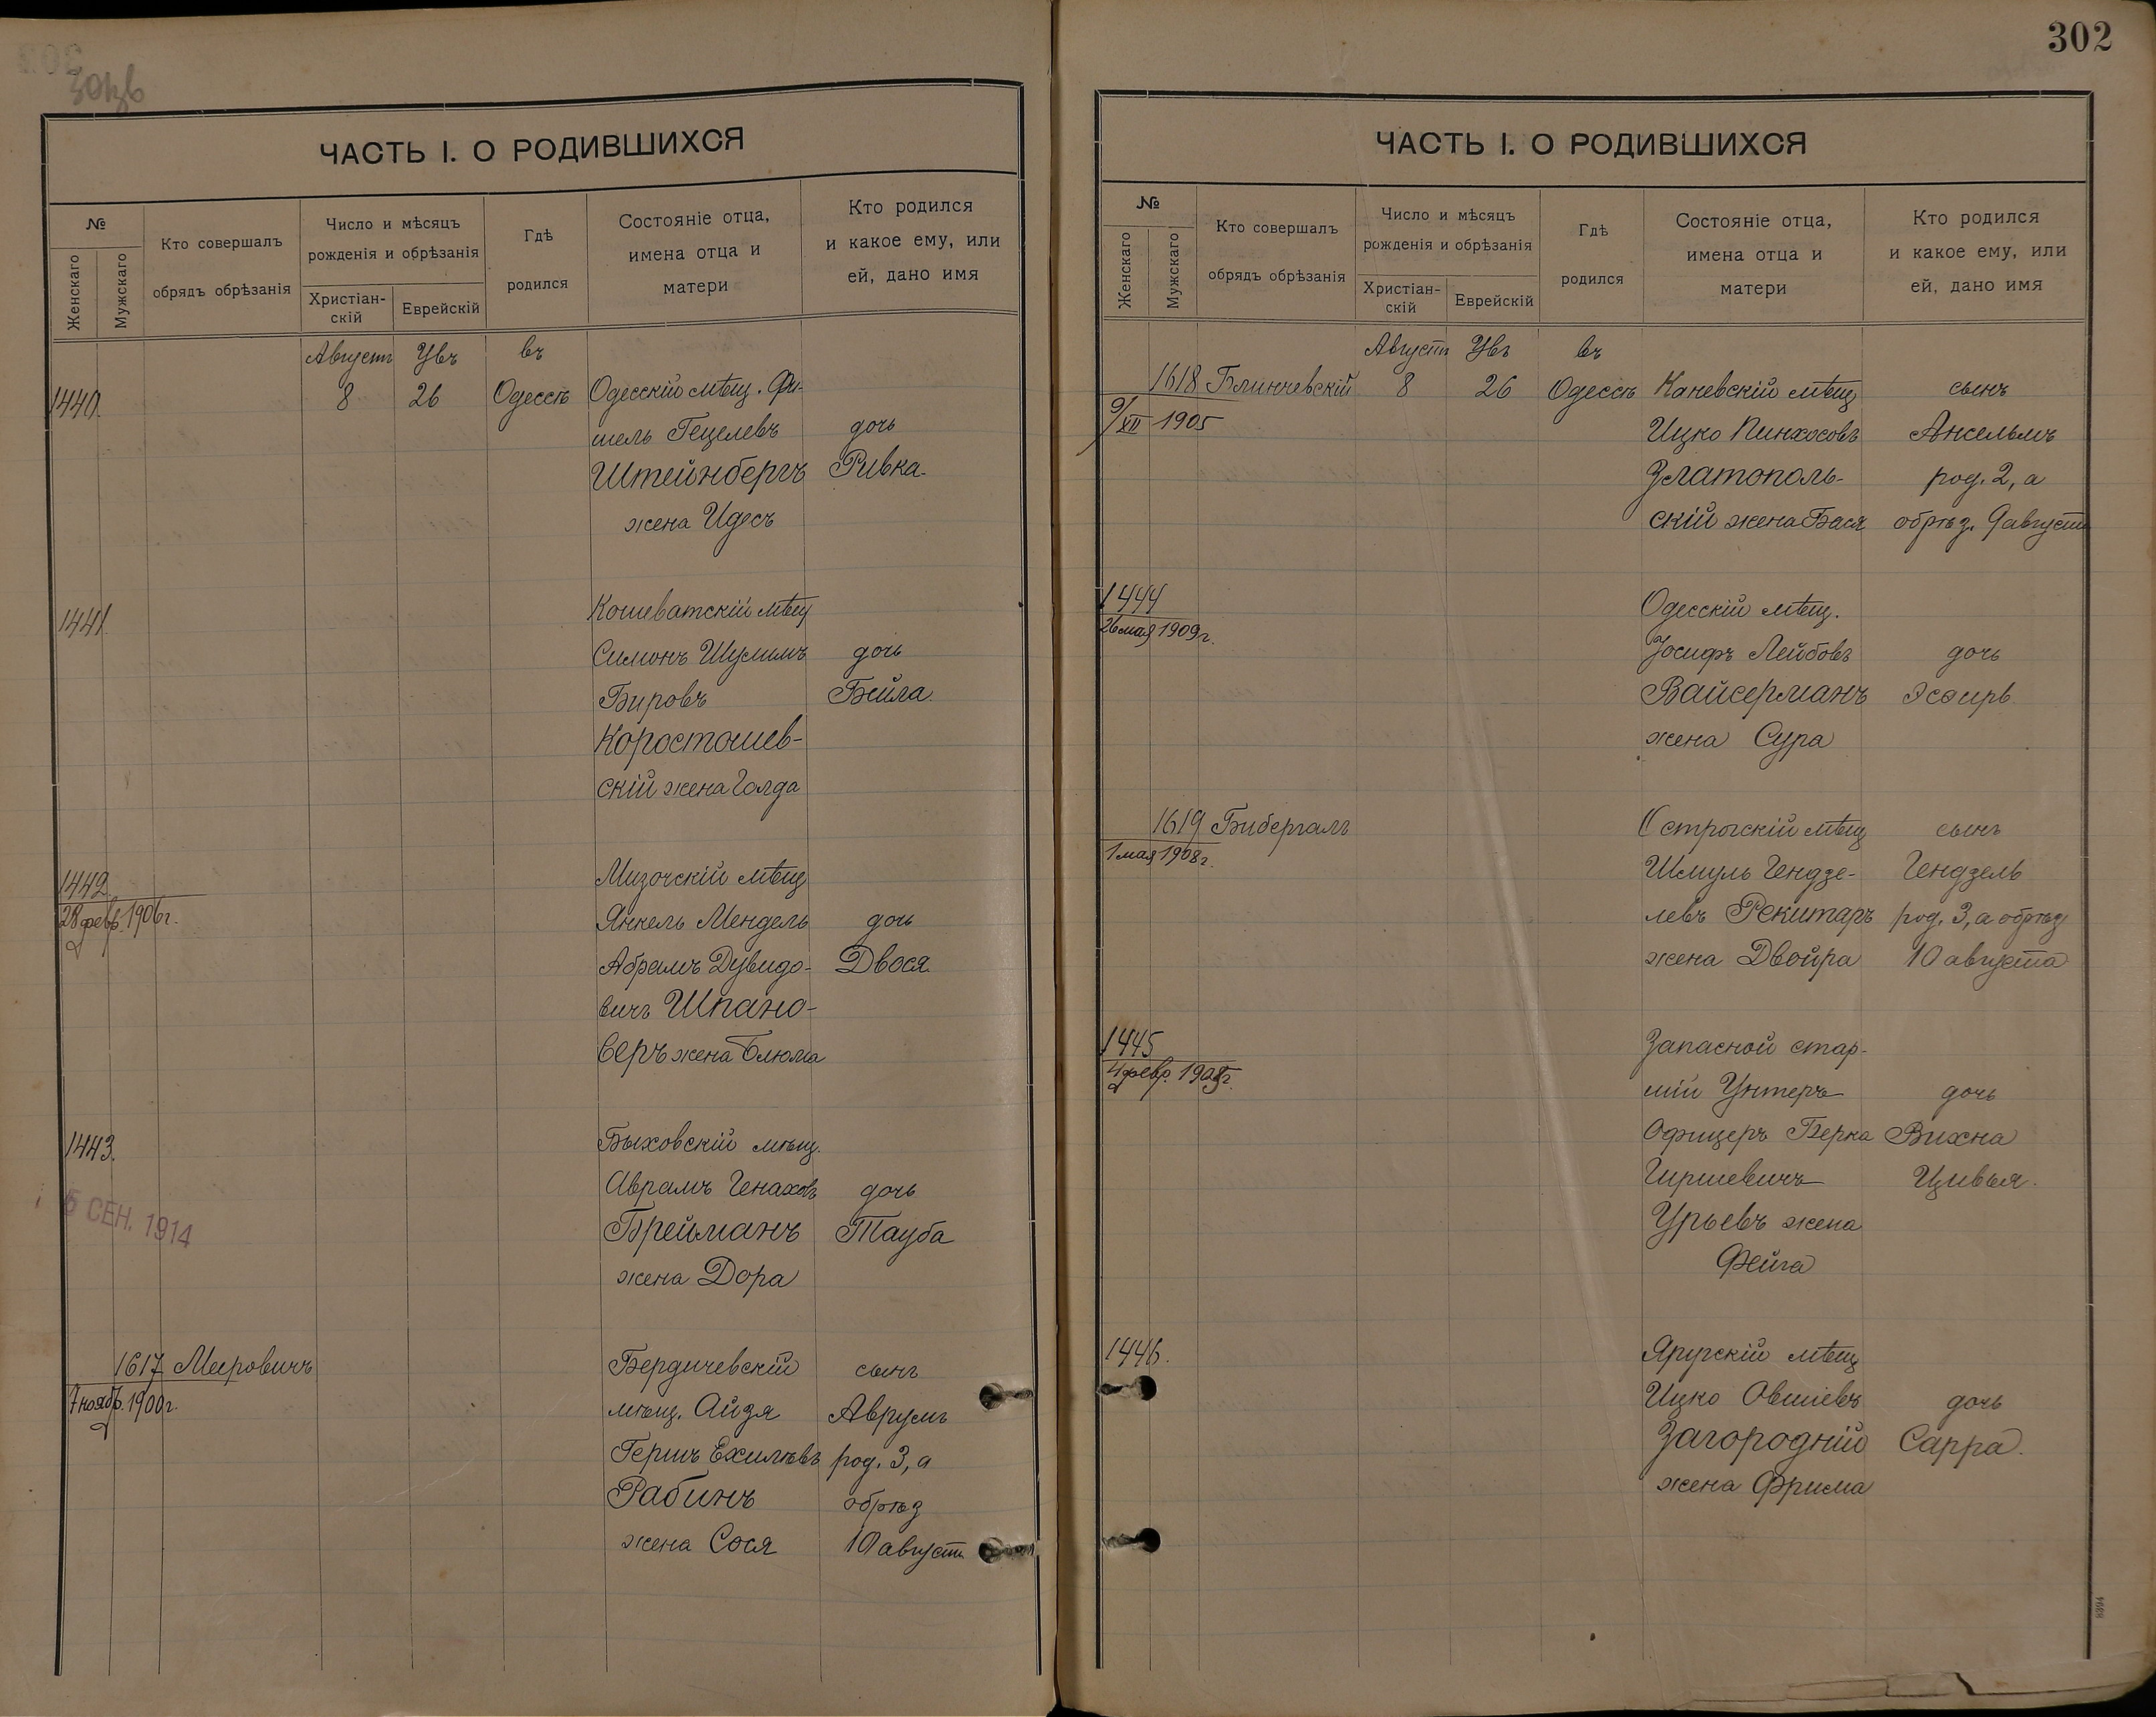 ЧАСТЬ I. О РОДИВШИХСЯ
№
Женскаго
Мужскаго
Кто совершалъ
обрядъ обрѣзанія
Число и мѣсяцъ
рожденія и обрѣзанія
Христіан-
скій
Еврейскій
Гдѣ
родился
Состояніе отца,
имена отца и
матери
Кто родился
и какое ему, или
ей, дано имя
Августъ Увъ въ
1440. 8 26 Одессѣ Одесскій мѣщ. Фи-
шель Гецелевъ дочь
Штейнбергъ Ривка
жена Идесъ
1441. Кошеватскій мѣщ
Симонъ Шулимъ дочь
Бировъ Бейла.
Коростошев-
скій жена Голда
1442. Мизочскій мѣщ
28 февр. 1906 г.
Янкель Мендель дочь
Абрамъ Дувидо- Двося.
вичъ Шпано-
веръ жена Блюма
1443. Быховскій мѣщ.
Аврамъ Генаховъ дочь
5 СЕН. 1914
Брейманъ Тауба
жена Дора
1617 Мееровичъ Бердичевскій сынъ
7 нояб. 1900 г.
мѣщ. Айзя Аврумъ
Гершъ Ехилевъ род. 3, а
Рабинъ обрѣз
жена Сося 10 августа
302
ЧАСТЬ I. О РОДИВШИХСЯ
№
Женскаго
Мужскаго
Кто совершалъ
обрядъ обрѣзанія
Число и мѣсяцъ
рожденія и обрѣзанія
Христіан-
скій
Еврейскій
Гдѣ
родился
Состояніе отца,
имена отца и
матери
Кто родился
и какое ему, или
ей, дано имя
Августъ Увъ въ
1618 Блинчевскій 8 26 Одессѣ Каневскій мѣщ сынъ
9/XII 1905
Ицко Пинхосовъ Ансельмъ
Златополь- род. 2, а
скій жена Бася обрѣз. 9 августа
1444 Одесскій мѣщ.
26 мая 1909 г.
Іосифъ Лейбовъ дочь
Вайсерманъ Эсѳирь
жена Сура
1619 Бибергалъ Острогскій мѣщ сынъ
1 мая 1908 г.
Шмуль Гендзе- Гендзель
левъ Рекитаръ род. 3, а обрѣз
жена Двойра 10 августа
1445 Запасной стар-
4 февр.
шій Унтеръ дочь
Офицеръ Берка Вихна
Гиршевичъ Цивья.
Урьевъ жена
Фейга
1446. Яругскій мѣщ
Ицко Овшіевъ дочь
Загородній Сарра.
жена Фрима
8394